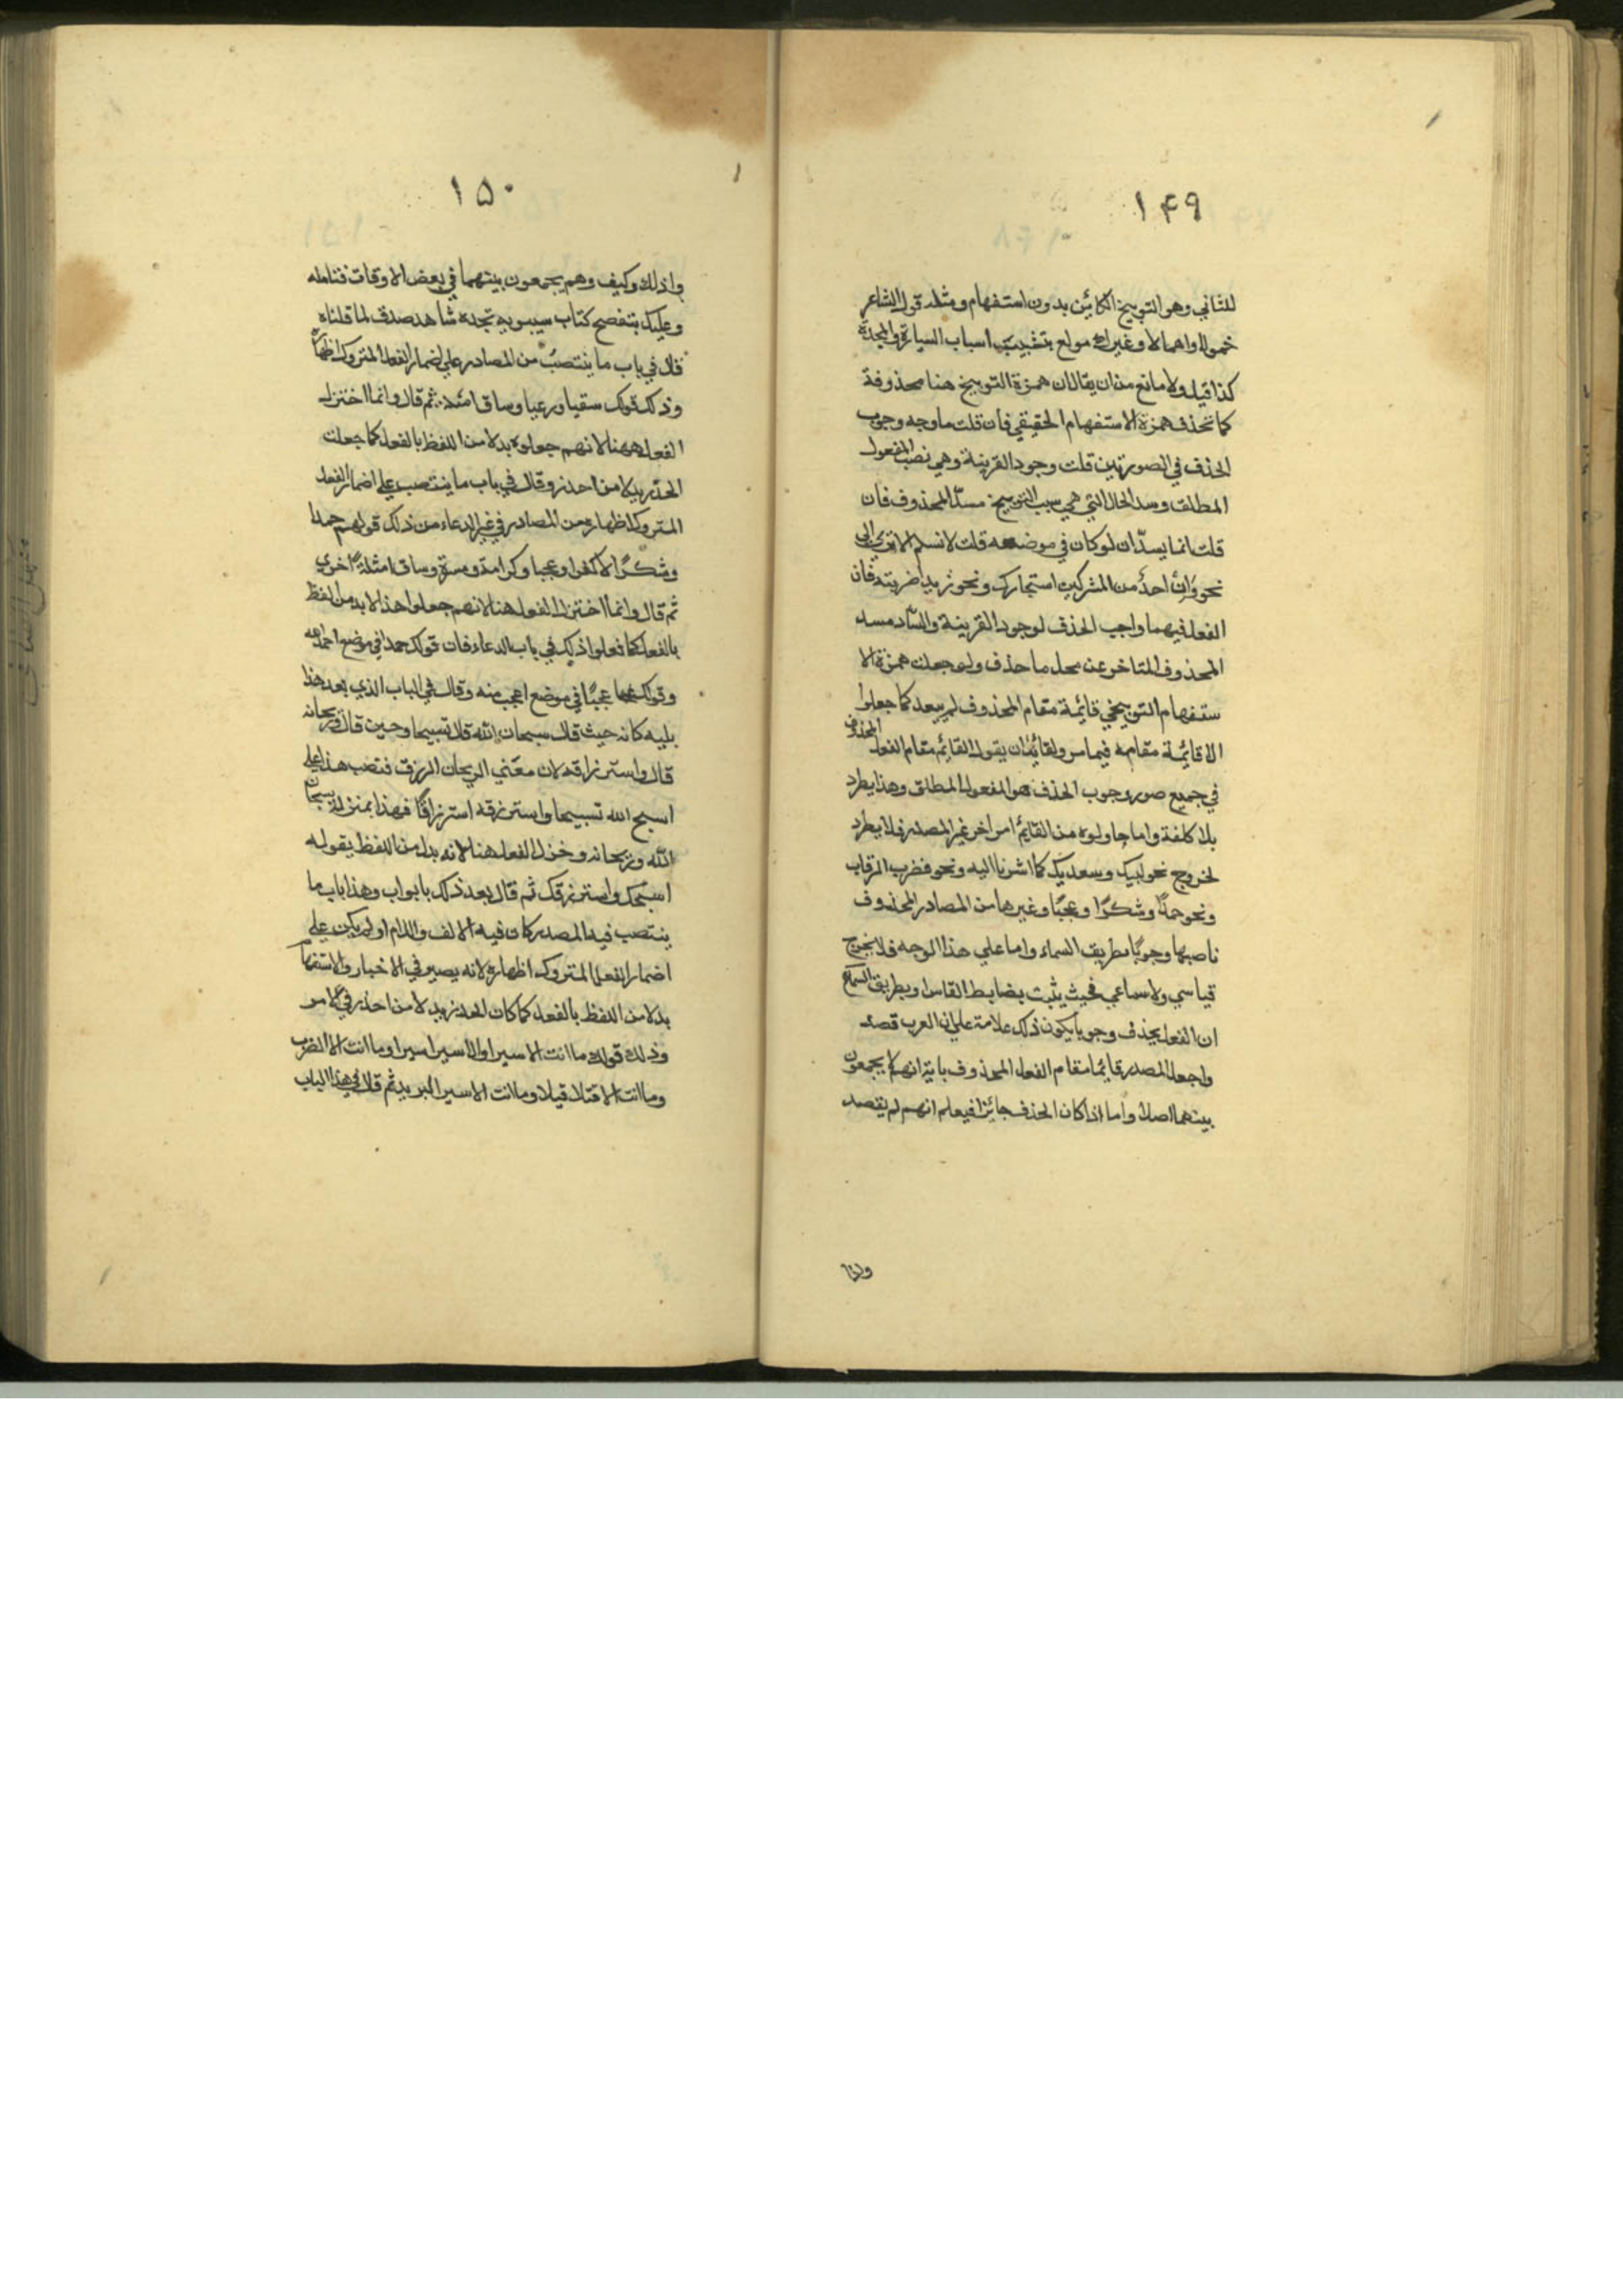 ۱۴۹
للثاني وهو التوبيخ الكائن بدون استفهام ومثله قول الشاعر
خمولا واهمالا وغيرك مولع بتثبيت اسباب السيادة والمجد
كذا قيل ولا مانع من ان يقال ان همزة التوبيخ هنا محذوفة
كما تحذف همزة الاستفهام الحقيقي فان قلت ما وجه وجوب
الحذف في الصورتين قلت وجود القرينة وهي نصب المفعول
المطلق وسد الحال التي هي سبب التوبيخ مسدّ المحذوف فان
قلت انما يسدّ ان لو كان في موضعه قلت لا نسلم الا ترى الى
نحو وان احدٌ من المشركين استجارك ونحو زيدا ضربته فان
الفعل فيهما واجب الحذف لوجود القرينة والسّاد مسد
المحذوف المتاخر عن محل ما حذف ولو جعلت همزة الا
ستفهام التوبيخي قائمة مقام المحذوف لم يبعد كما جعلوا
الا قائمة مقامه فيما مر ولقائل ان يقول القائم مقام الفعل المحذوف
في جميع صور وجوب الحذف هو المفعول المطلق وهذا يطرد
بلا كلفة واما ما جاولوه من القائم امر اخر غير المصدر فلا يطرد
لخروج نحو لبيك وسعديك كما اشرنا اليه ونحو فضرب الرقاب
ونحو حمدًا وشكرًا وعجبًا وغيرها من المصادر المحذوف
ناصبها وجوبًا بطريق السماء واما علي هذا الوجه فلا يخرج
قياسي ولا سماعي فحيث يثبت بضابط القاس او بطريق السماع
ان الفعل يحذف وجوبا يكون ذلك علامة علي ان العرب قصد
واجعل المصدر قائما مقام الفعل المحذوف باية انهم لا يجمعون
بينهما اصلا واما اذا كان الحذف جائزا فيعلم انهم لم يقصد
۱۵۰
وا ذلك وكيف وهم يجمعون بينهما في بعض الاوقات فتامله
وعليك بتفصح كتاب سيبويه تجده شاهد صدق لما قلناه
قال في باب ما ينتصب من المصادر علي اضمار الفعل المتروك اظهاره
وذلك قولك سقيا ورعيا وساق امثلة ثم قال وانما اختزل
الفعل ههنا لانهم جعلوه بدلا من اللفظ بالفعل كما جعلت
الحذر بدلا من احذر وقال في باب ما ينتصب علي اضمار الفعل
المتروك اظهاره من المصادر في غير الدعاء من ذلك قولهم حمدا
وشكرًا لا كفرا وعجبا وكرامة ومسرة وساق امثلة اخرى
ثم قال وانما اختزل الفعل هنا لانهم جعلوا هذا بدلا من لفظ
بالفعل كما فعلوا ذلك في باب الدعاء فان قولك حمدا في موضع احمد الله
وقولك عجبًا في موضع اعجب منه وقال في الباب الذي بعد هذا
يليه كانه حيث قال سبحان الله قال تسبيحا وحين قال وريحانه
قال واسترزاقه لان معني الريحان الرزق فنصب هذا علي
اسبح الله تسبيحا واسترزقه استرزاقًا فهذا بمنزلة سبحان
الله وريحانه وخزل الفعل هنا لانه بدل من اللفظ بقوله
اسبحك واسترزقك ثم قال بعد ذلك بابواب وهذا باب ما
ينتصب فيه المصدر كان فيه الالف واللام او لم يكن علي
اضمار الفعل المتروك اظهاره لانه يصير في الاخبار والاستفهام
بدلا من اللفظ بالفعل كما كان الحذر بدلا من احذر في الامر
وذلك قولك ما انت الا سيرا والا سيرا سيرا وما انت الا الضرب
وما انت الا قتلا قتلا وما انت الا سير البريد ثم قال في هذا الباب